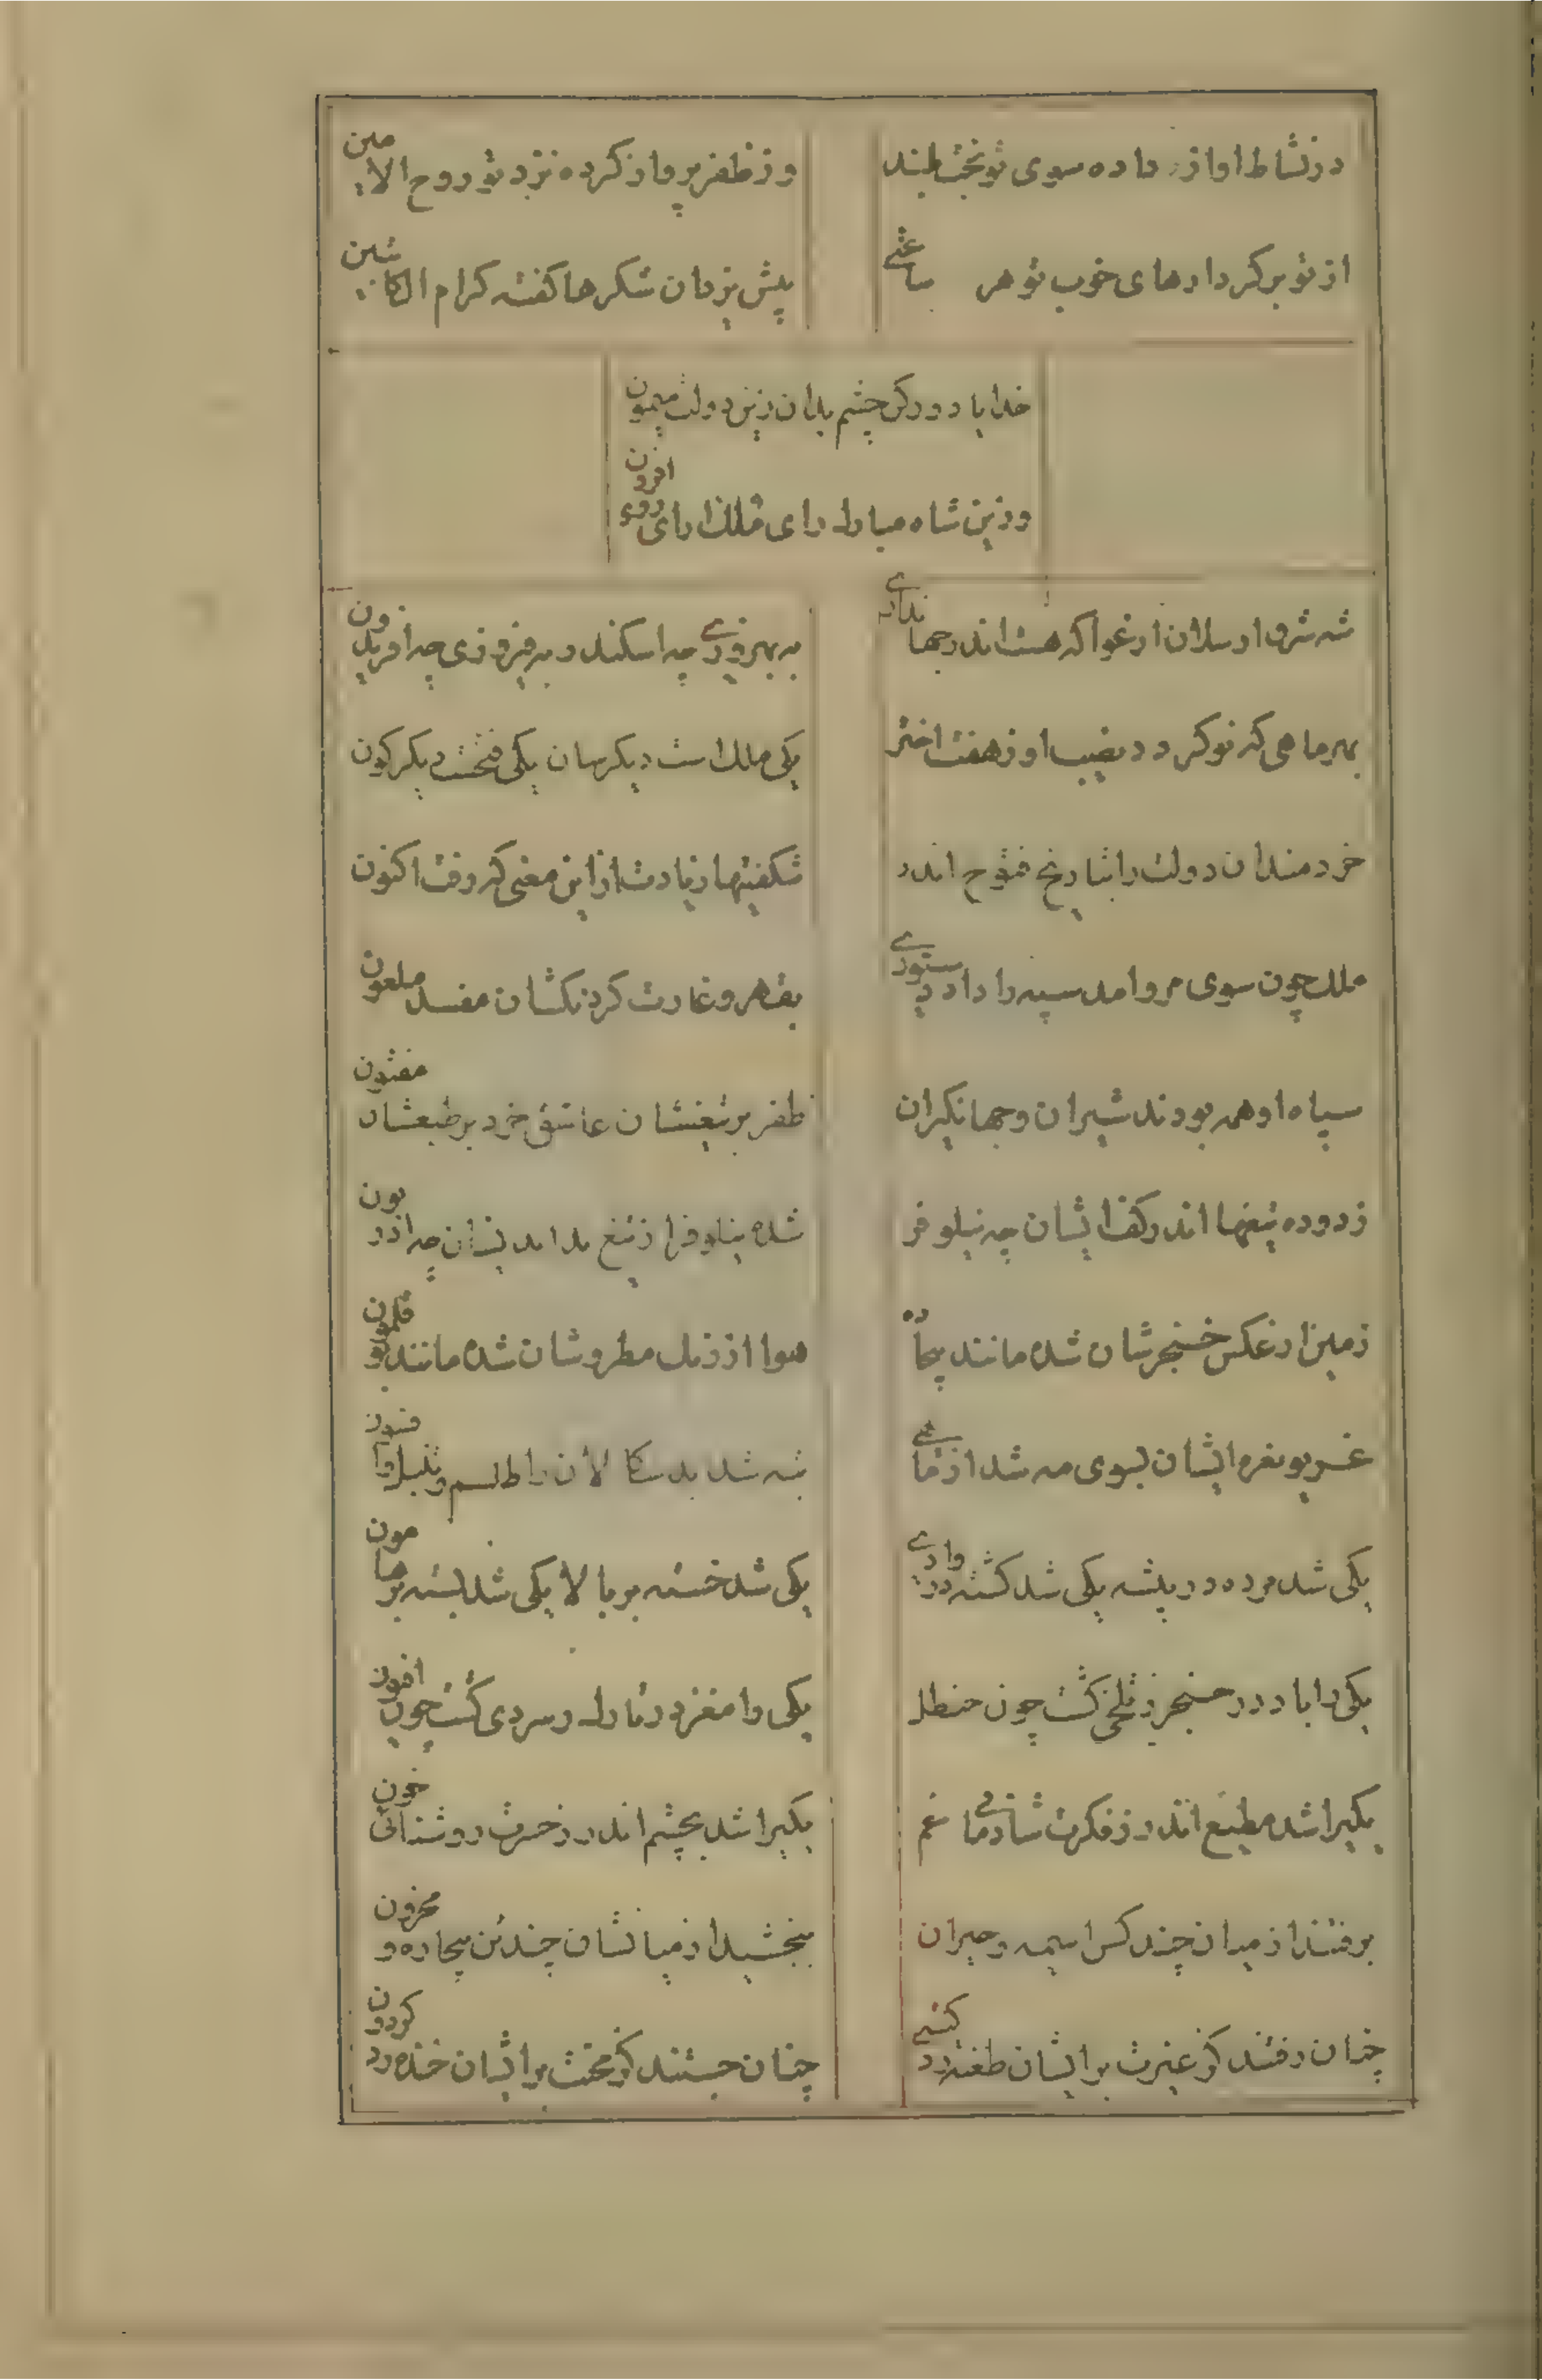 در نشاط اواز داده سوی تو بخت بلند
وز ظفر پرواز کرده نزد تو روح الامین
از تو بر کردارهای خوب تو هر ساعتی
پیش یزدان شکرها کفته کرام الکاتبین
خدایا دور کن چشم بدان زین دولت میمون
وزین شاه مبارک رای ملک ارای روزافزون
شه شرق ارسلان ارغوا که هست اندر جهانداری
به بهروزی چه اسکندر به فیروزی چه افریدون
بهر ماهی که نو کردد نصیب او ز هفت اختر
یکی ملک است دیکرسان یکی فتحست دیکرکون
خردمندان دولت را بتاریخ فتوح اندر
شکفتیها زیادت از این معنی که رفت اکنون
ملک چون سوی مرو امد سپه را داد دستوری
بقهر و غارت کردنکشان مفسد ملعون
سپاه او همه بودند شیران و جهانکیران
ظفر بر تیغشان عاشق خرد بر طبعشان مفتون
زدوده تیغها اندر کف ایشان چه نیلوفر
شده نیلوفر از تیغ بداندیشان چه اذریون
زمین از عکس خنجرشان شده مانند بیجاده
هوا از رنک مطردشان شده مانند بوقلمون
غریو نعره ایشان بسوی مه شد از ماهی
تبه شد بدسکالان را طلسم و تنبل و افسون
یکی شد مرده در بیشه یکی شد کشته در وادی
یکی شد خسته بر بالا یکی شد بسته بر هامون
یکی را باد در حنجر ز تلخی کشت چون حنظل
یکی را مغز در تارک ز سردی کشت چون افیون
یکیرا شد بطبع اندر ز فکرت شادمانی غم
یکیرا شد بچشم اندر ز حسرت روشنائی خون
برفتند از میدان چند کس اسیمه و حیران
بخشید از میانشان چند تن بیچاره و محزون
چنان رفتند کز غیرت بر ایشان طعنه زد کیتی
چنان جستند کز محنت بر ایشان خنده زد کردون